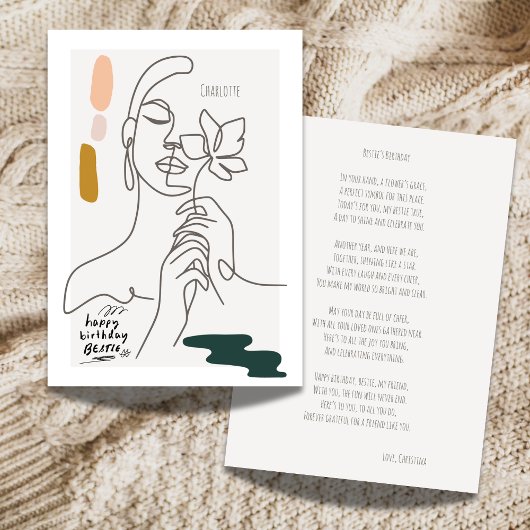 Charlotte
happy
birthday
BESTIE
Bestie's Birthday
In your hand, a flower's grace,
A perfect symbol for this place.
Today's for you, my bestie task,
A day to shine and celebrate you.
Another year, and here we are,
Together, shining like a star.
With every laugh and every cheer,
You make my world so bright and clear.
May your day be full of cheer,
With all your loved ones gathered near.
Here's to all the joy you bring,
And celebrating everything.
Happy birthday, bestie, my friend,
With you, the fun will never end.
Here's to you, to all you do,
Forever grateful for a friend like you.
Love, Christina